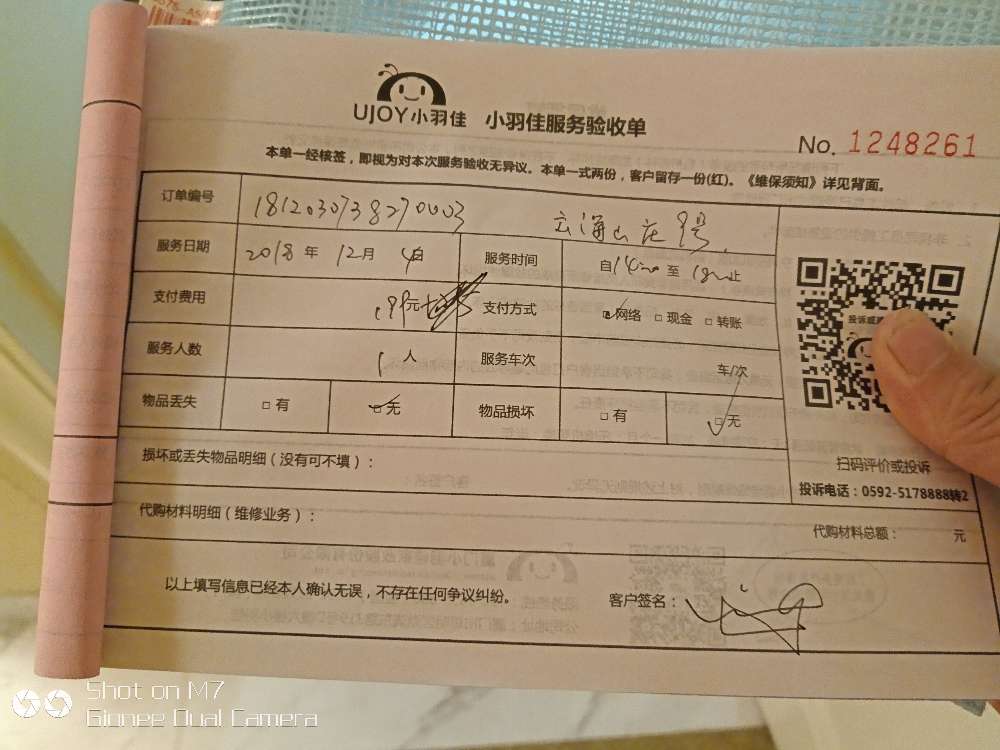 UJOY小羽佳 小羽佳服务验收单
No. 1248261
本单一经核签，即视为对本次服务验收无异议。本单一式两份，客户留存一份(红)。《维保须知》详见背面。
订单编号 1812030738270003 云海山庄 9号
服务日期 2018年 12月 4日 服务时间 自14:00至18:00止
支付费用 199元 支付方式 □网络 □现金 □转账
服务人数 1人 服务车次 车/次
物品丢失 □有 □无 物品损坏 □有 □无
扫码评价或投诉
投诉电话：0592-5178888转2
损坏或丢失物品明细（没有可不填）：
代购材料明细（维修业务）： 代购材料总额： 元
以上填写信息已经本人确认无误，不存在任何争议纠纷。 客户签名：
Shot on M7
Gionee Dual Camera